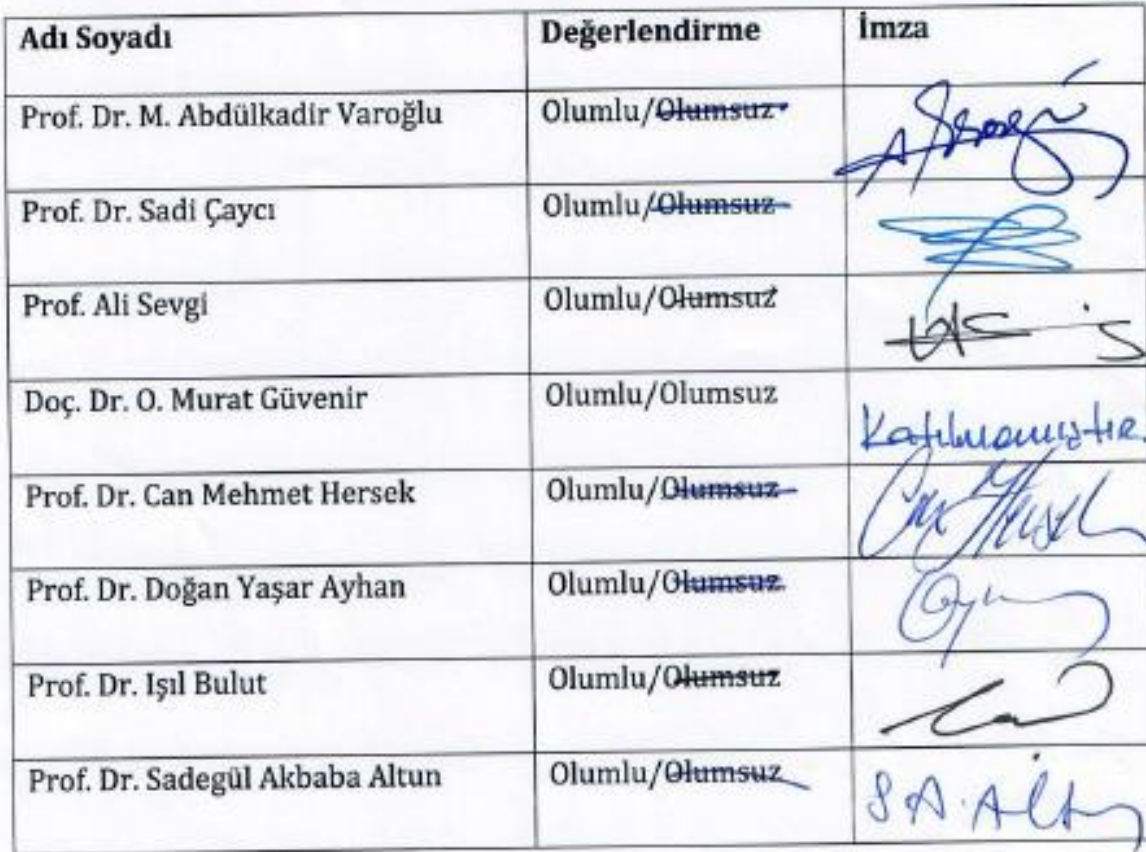 Adı Soyadı Değerlendirme İmza
Prof. Dr. M. Abdülkadir Varoğlu Olumlu/Olumsuz
Prof. Dr. Sadi Çaycı Olumlu/Olumsuz
Prof. Ali Sevgi Olumlu/Olumsuz
Doç. Dr. O. Murat Güvenir Olumlu/Olumsuz Katılmamıştır.
Prof. Dr. Can Mehmet Hersek Olumlu/Olumsuz
Prof. Dr. Doğan Yaşar Ayhan Olumlu/Olumsuz
Prof. Dr. Işıl Bulut Olumlu/Olumsuz
Prof. Dr. Sadegül Akbaba Altun Olumlu/Olumsuz